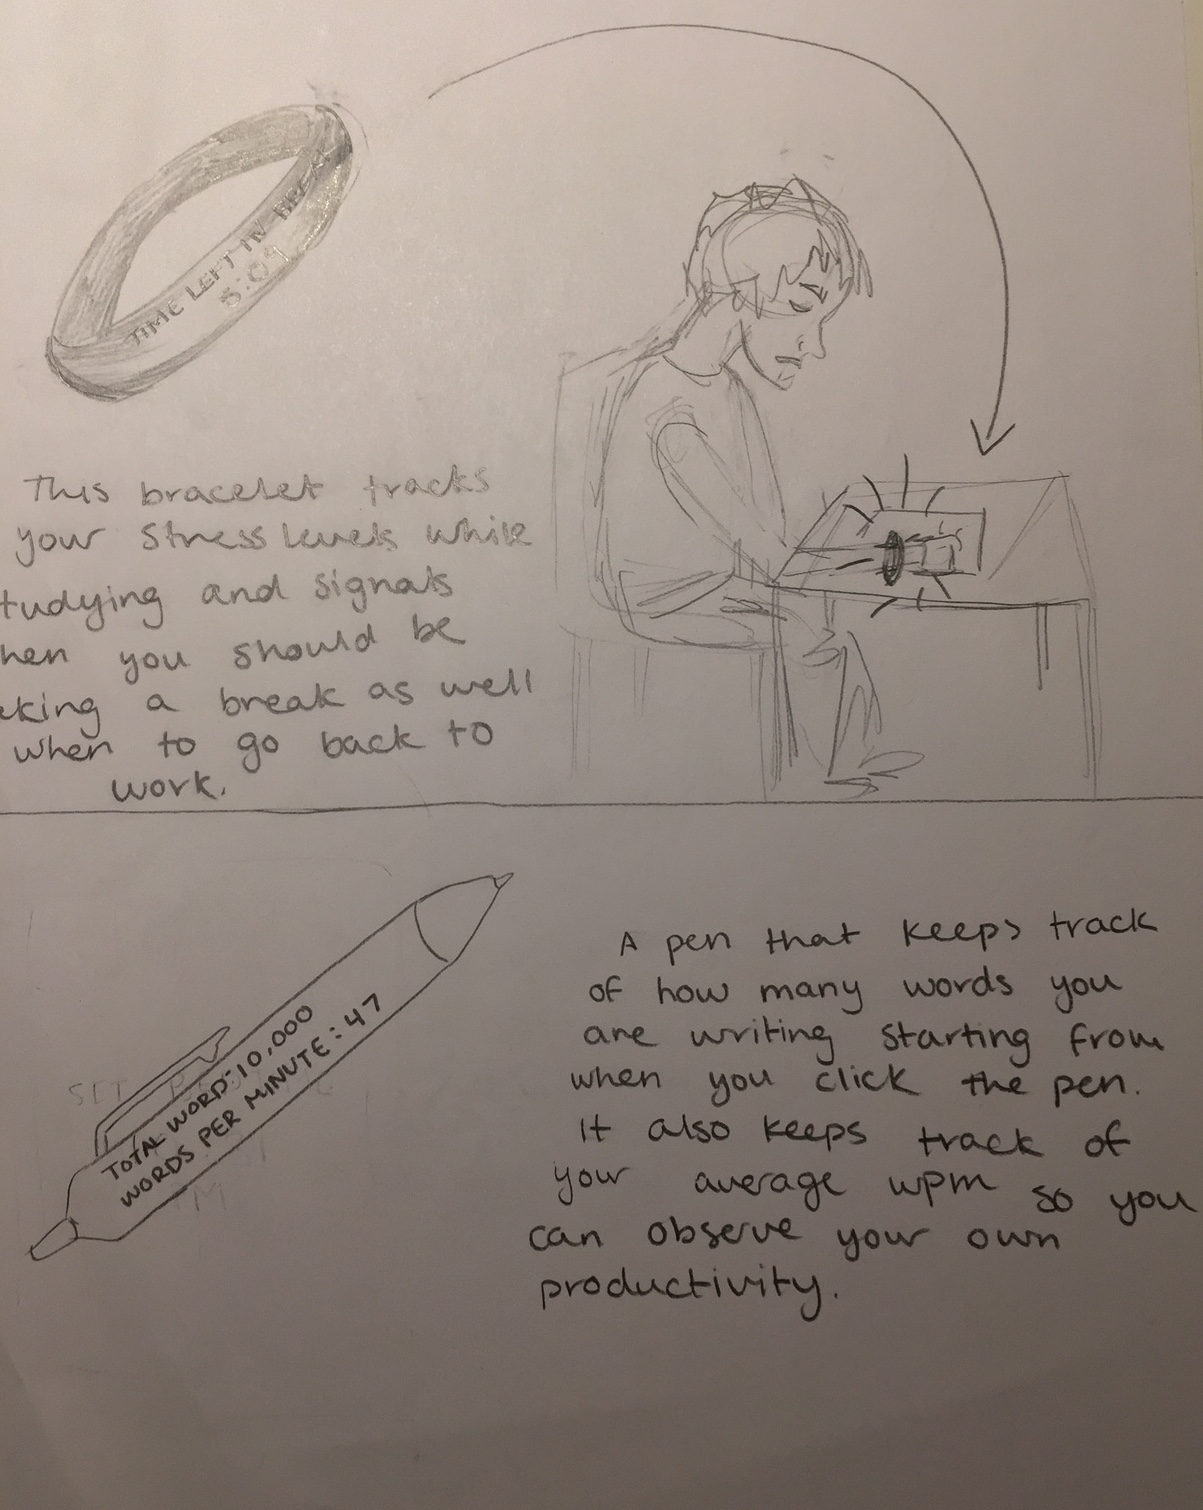 TIME LEFT IN BREAK
5:09
This bracelet tracks
your stress levels while
tudying and signals
hen you should be
aking a break as well
when to go back to
work.
TOTAL WORD:10,000
WORDS PER MINUTE:47
A pen that keeps track
of how many words you
are writing starting from
when you click the pen.
It also keeps track of
your average wpm so you
can observe your own
productivity.
SET